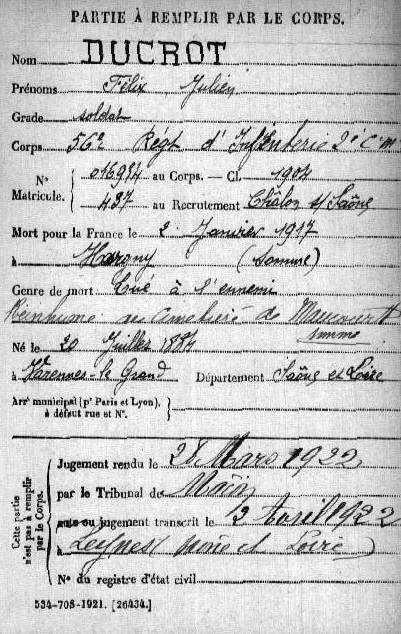 PARTIE À REMPLIR PAR LE CORPS.
Nom DUCROT
Prénoms Félix Julien
Grade soldat
Corps 56e Régt d'Infanterie 2e C.M
Nº Matricule. { 016984 au Corps. — Cl. 1904
437 au Recrutement Châlon s/ Saône
Mort pour la France le 2 Janvier 1917
à (Somme)
Genre de mort Tué à l'ennemi
Réinhumé au cimetière de Maucourt
Somme
Né le 20 Juillet 1884
à Varennes-le Grand Département Saône et Loire
Arrt municipal (pr Paris et Lyon),
à défaut rue et Nº.
Cette partie n'est pas à remplir par le Corps.
Jugement rendu le 28 Mars 1922
par le Tribunal de Mâcon
acte ou jugement transcrit le 12 Avril 1922
à Leynes Saône et Loire
Nº du registre d'état civil
534-708-1921. [26434.]